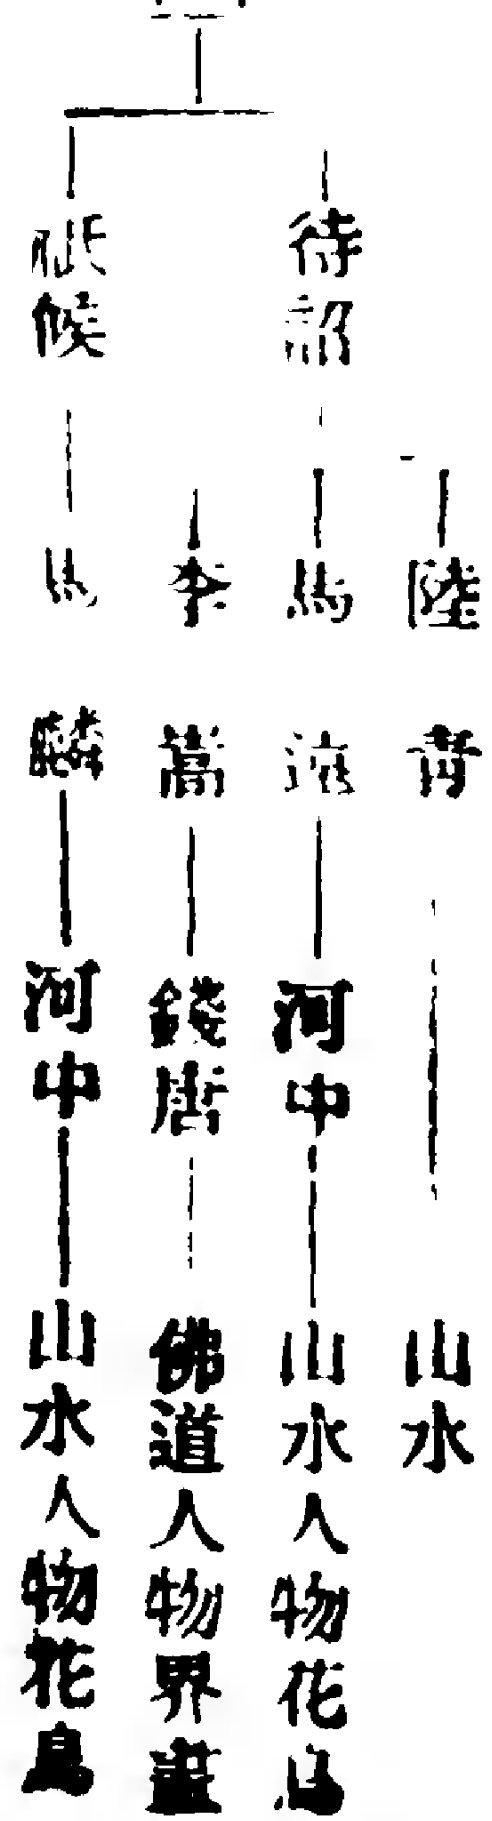 陸青 山水
待詔 馬遠 河中 山水人物花鳥
李嵩 錢唐 佛道人物界畫
祗候 馬麟 河中 山水人物花鳥